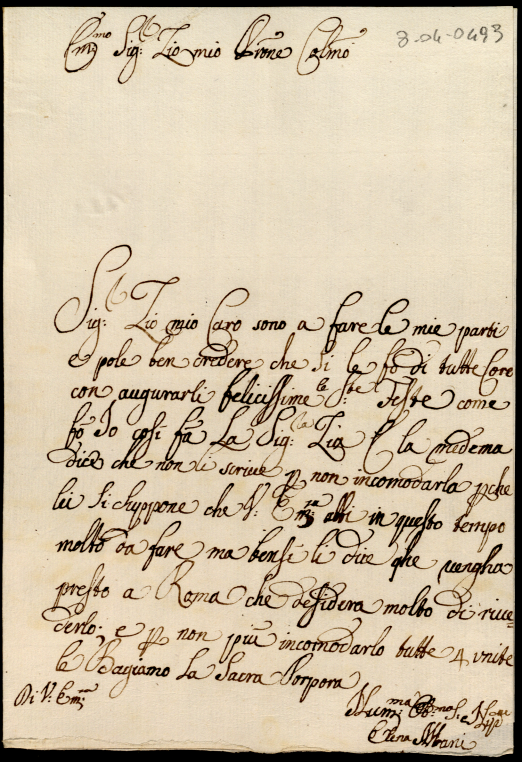 Em:mo Sig:r Zio mio Prone Colmo
8-04-0493
Sig:r Zio mio Caro sono a fare le mie parti
e pole ben credere che si le fo di tutto Core
con augurarli felicissime le Ste Feste come
fo Io cosi fa La Sig:ra Zia E la medema
dice che non li scrive p non incomodarla pche
lei si chuppone che V: Em:za abbi in questo tempo
molto da fare ma bensi li dice che vengha
presto a Roma che desidera molto di rive-
derlo; e p non più incomodarlo tutte 4 unite
le Bagiamo La Sacra Porpora
Di V: Em:za
Hum:ma
Elena Albani